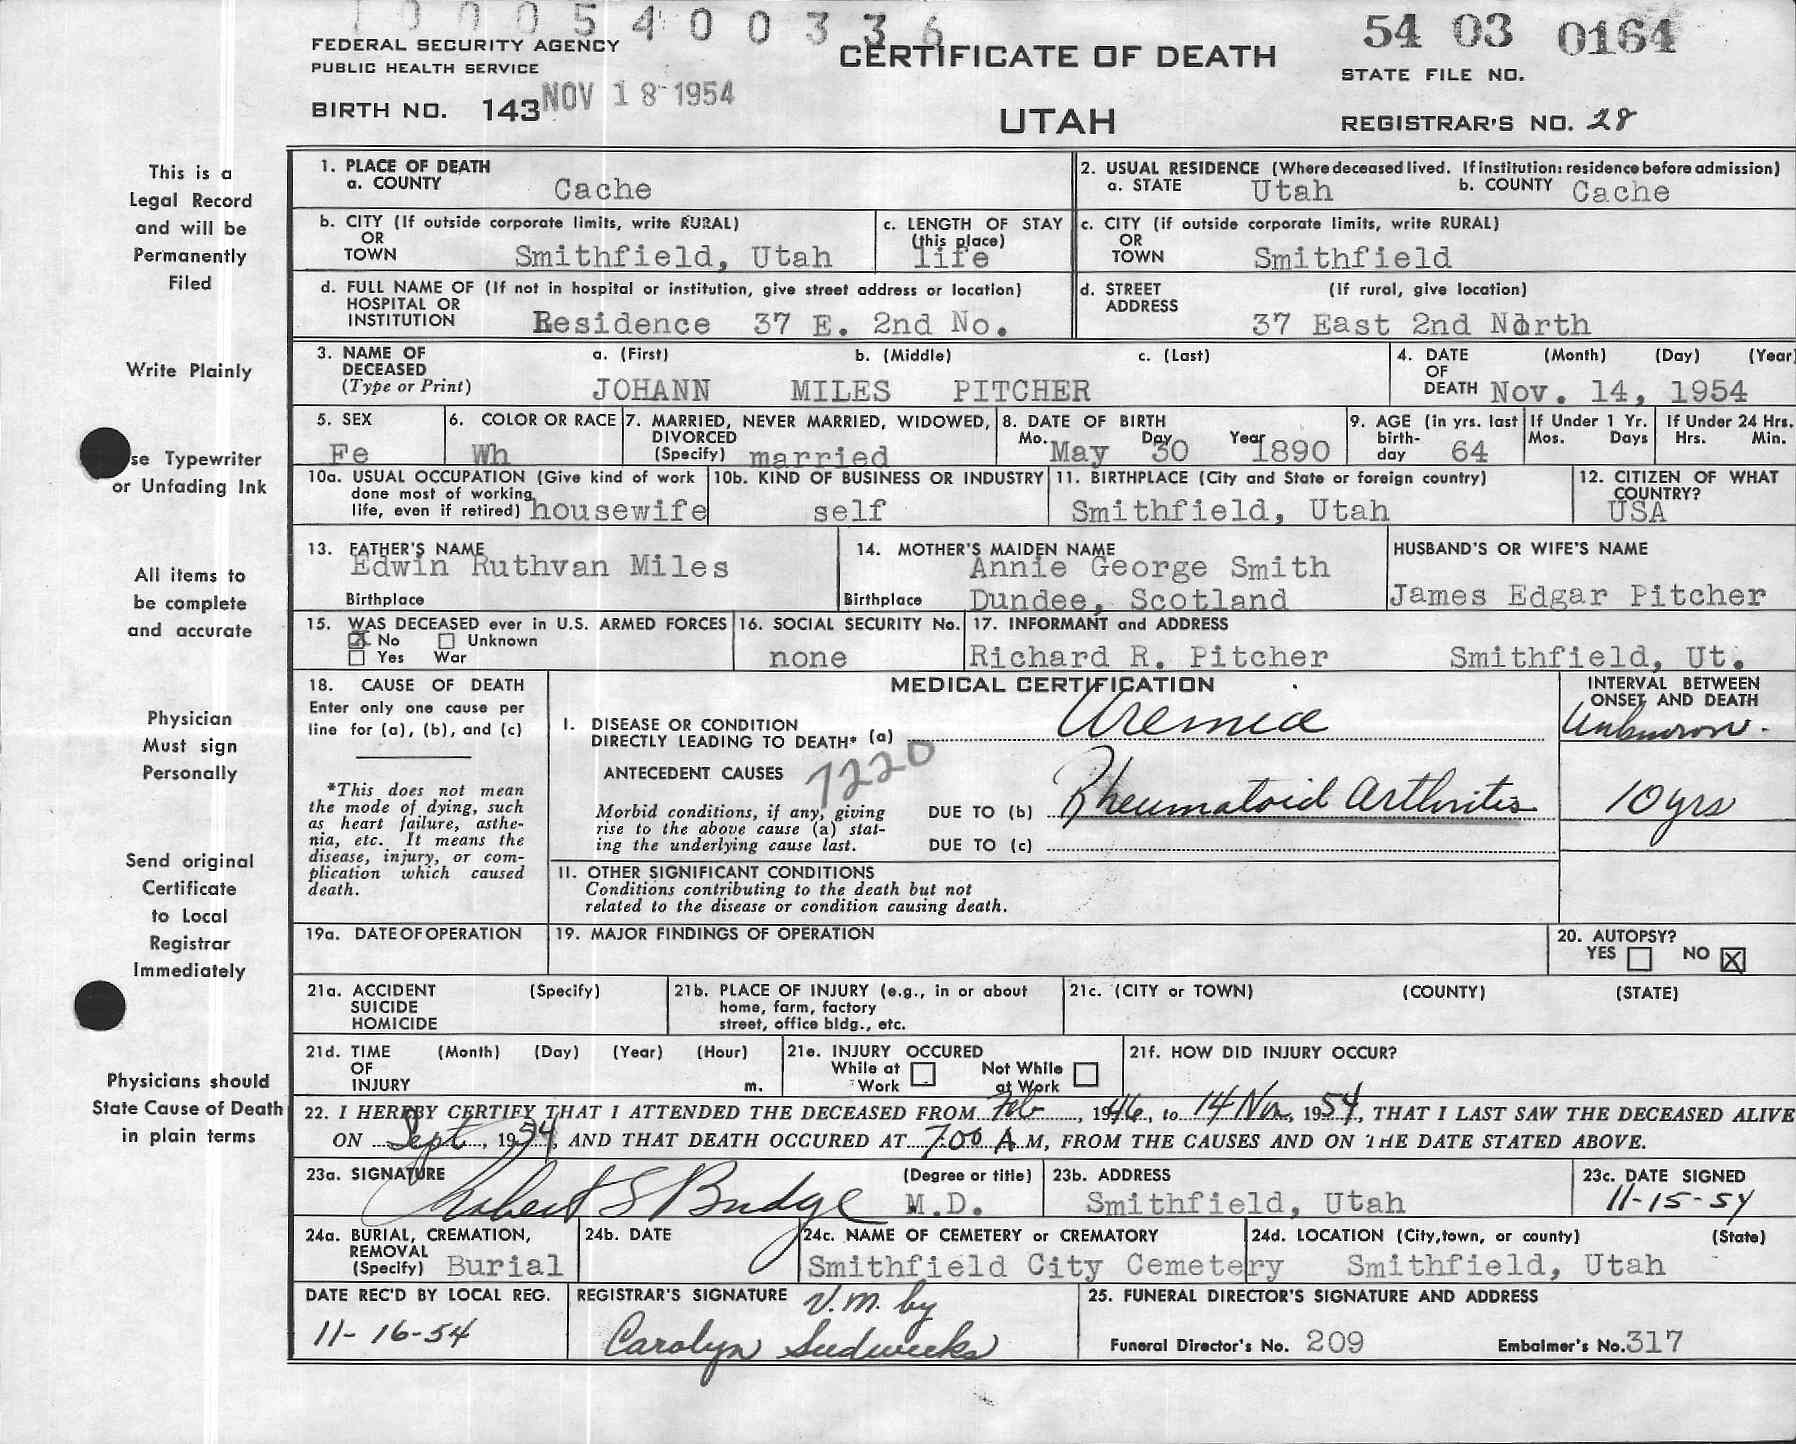 1 0 0 5 4 0 0 3 3 6
54 03 0164
FEDERAL SECURITY AGENCY
PUBLIC HEALTH SERVICE
CERTIFICATE OF DEATH
STATE FILE NO.
BIRTH NO. 143 NOV 18 1954
UTAH
REGISTRAR'S NO. 28
This is a
Legal Record
and will be
Permanently
Filed
Write Plainly
se Typewriter
or Unfading Ink
All items to
be complete
and accurate
Physician
Must sign
Personally
Send original
Certificate
to Local
Registrar
Immediately
Physicians should
State Cause of Death
in plain terms
1. PLACE OF DEATH
a. COUNTY Cache
2. USUAL RESIDENCE (Where deceased lived. If institution: residence before admission)
a. STATE Utah b. COUNTY Cache
b. CITY (If outside corporate limits, write RURAL)
OR
TOWN Smithfield, Utah
c. LENGTH OF STAY
(this place)
life
c. CITY (if outside corporate limits, write RURAL)
OR
TOWN Smithfield
d. FULL NAME OF (If not in hospital or institution, give street address or location)
HOSPITAL OR
INSTITUTION Residence 37 E. 2nd No.
d. STREET (If rural, give location)
ADDRESS
37 East 2nd North
3. NAME OF DECEASED (Type or Print) a. (First) b. (Middle) c. (Last)
JOHANN MILES PITCHER
4. DATE OF DEATH (Month) (Day) (Year)
Nov. 14, 1954
5. SEX
Fe
6. COLOR OR RACE
Wh
7. MARRIED, NEVER MARRIED, WIDOWED,
DIVORCED
(Specify) married
8. DATE OF BIRTH
Mo. Day Year
May 30 1890
9. AGE (in yrs. last
birth-
day 64
If Under 1 Yr.
Mos. Days
If Under 24 Hrs.
Hrs. Min.
10a. USUAL OCCUPATION (Give kind of work
done most of working
life, even if retired) housewife
10b. KIND OF BUSINESS OR INDUSTRY
self
11. BIRTHPLACE (City and State or foreign country)
Smithfield, Utah
12. CITIZEN OF WHAT
COUNTRY?
USA
13. FATHER'S NAME
Edwin Ruthvan Miles
Birthplace
14. MOTHER'S MAIDEN NAME
Annie George Smith
Birthplace Dundee, Scotland
HUSBAND'S OR WIFE'S NAME
James Edgar Pitcher
15. WAS DECEASED ever in U.S. ARMED FORCES
No Unknown
Yes War
16. SOCIAL SECURITY No.
none
17. INFORMANT and ADDRESS
Richard R. Pitcher Smithfield, Ut.
18. CAUSE OF DEATH
Enter only one cause per
line for (a), (b), and (c)
*This does not mean
the mode of dying, such
as heart failure, asthe-
nia, etc. It means the
disease, injury, or com-
plication which caused
death.
MEDICAL CERTIFICATION
INTERVAL BETWEEN
ONSET AND DEATH
I. DISEASE OR CONDITION
DIRECTLY LEADING TO DEATH* (a) Uremia Unknown.
ANTECEDENT CAUSES 7220
Morbid conditions, if any, giving
rise to the above cause (a) stat-
ing the underlying cause last.
DUE TO (b) Rheumatoid Arthritis 10 yrs
DUE TO (c)
II. OTHER SIGNIFICANT CONDITIONS
Conditions contributing to the death but not
related to the disease or condition causing death.
19a. DATE OF OPERATION
19. MAJOR FINDINGS OF OPERATION
20. AUTOPSY?
YES NO X
21a. ACCIDENT (Specify)
SUICIDE
HOMICIDE
21b. PLACE OF INJURY (e.g., in or about
home, farm, factory
street, office bldg., etc.
21c. (CITY or TOWN) (COUNTY) (STATE)
21d. TIME (Month) (Day) (Year) (Hour)
OF
INJURY m.
21e. INJURY OCCURED
While at Work Not While at Work
21f. HOW DID INJURY OCCUR?
22. I HEREBY CERTIFY THAT I ATTENDED THE DECEASED FROM Feb, 1946, to 14 Nov, 1954, THAT I LAST SAW THE DECEASED ALIVE
ON Sept, 1954, AND THAT DEATH OCCURED AT 7:00 A M, FROM THE CAUSES AND ON THE DATE STATED ABOVE.
23a. SIGNATURE (Degree or title)
Robert S Budge M.D.
23b. ADDRESS
Smithfield, Utah
23c. DATE SIGNED
11-15-54
24a. BURIAL, CREMATION,
REMOVAL
(Specify) Burial
24b. DATE
24c. NAME OF CEMETERY or CREMATORY
Smithfield City Cemetery
24d. LOCATION (City, town, or county) (State)
Smithfield, Utah
DATE REC'D BY LOCAL REG.
11-16-54
REGISTRAR'S SIGNATURE V.M. by
Carolyn Sudweeks
25. FUNERAL DIRECTOR'S SIGNATURE AND ADDRESS
Funeral Director's No. 209 Embalmer's No. 317